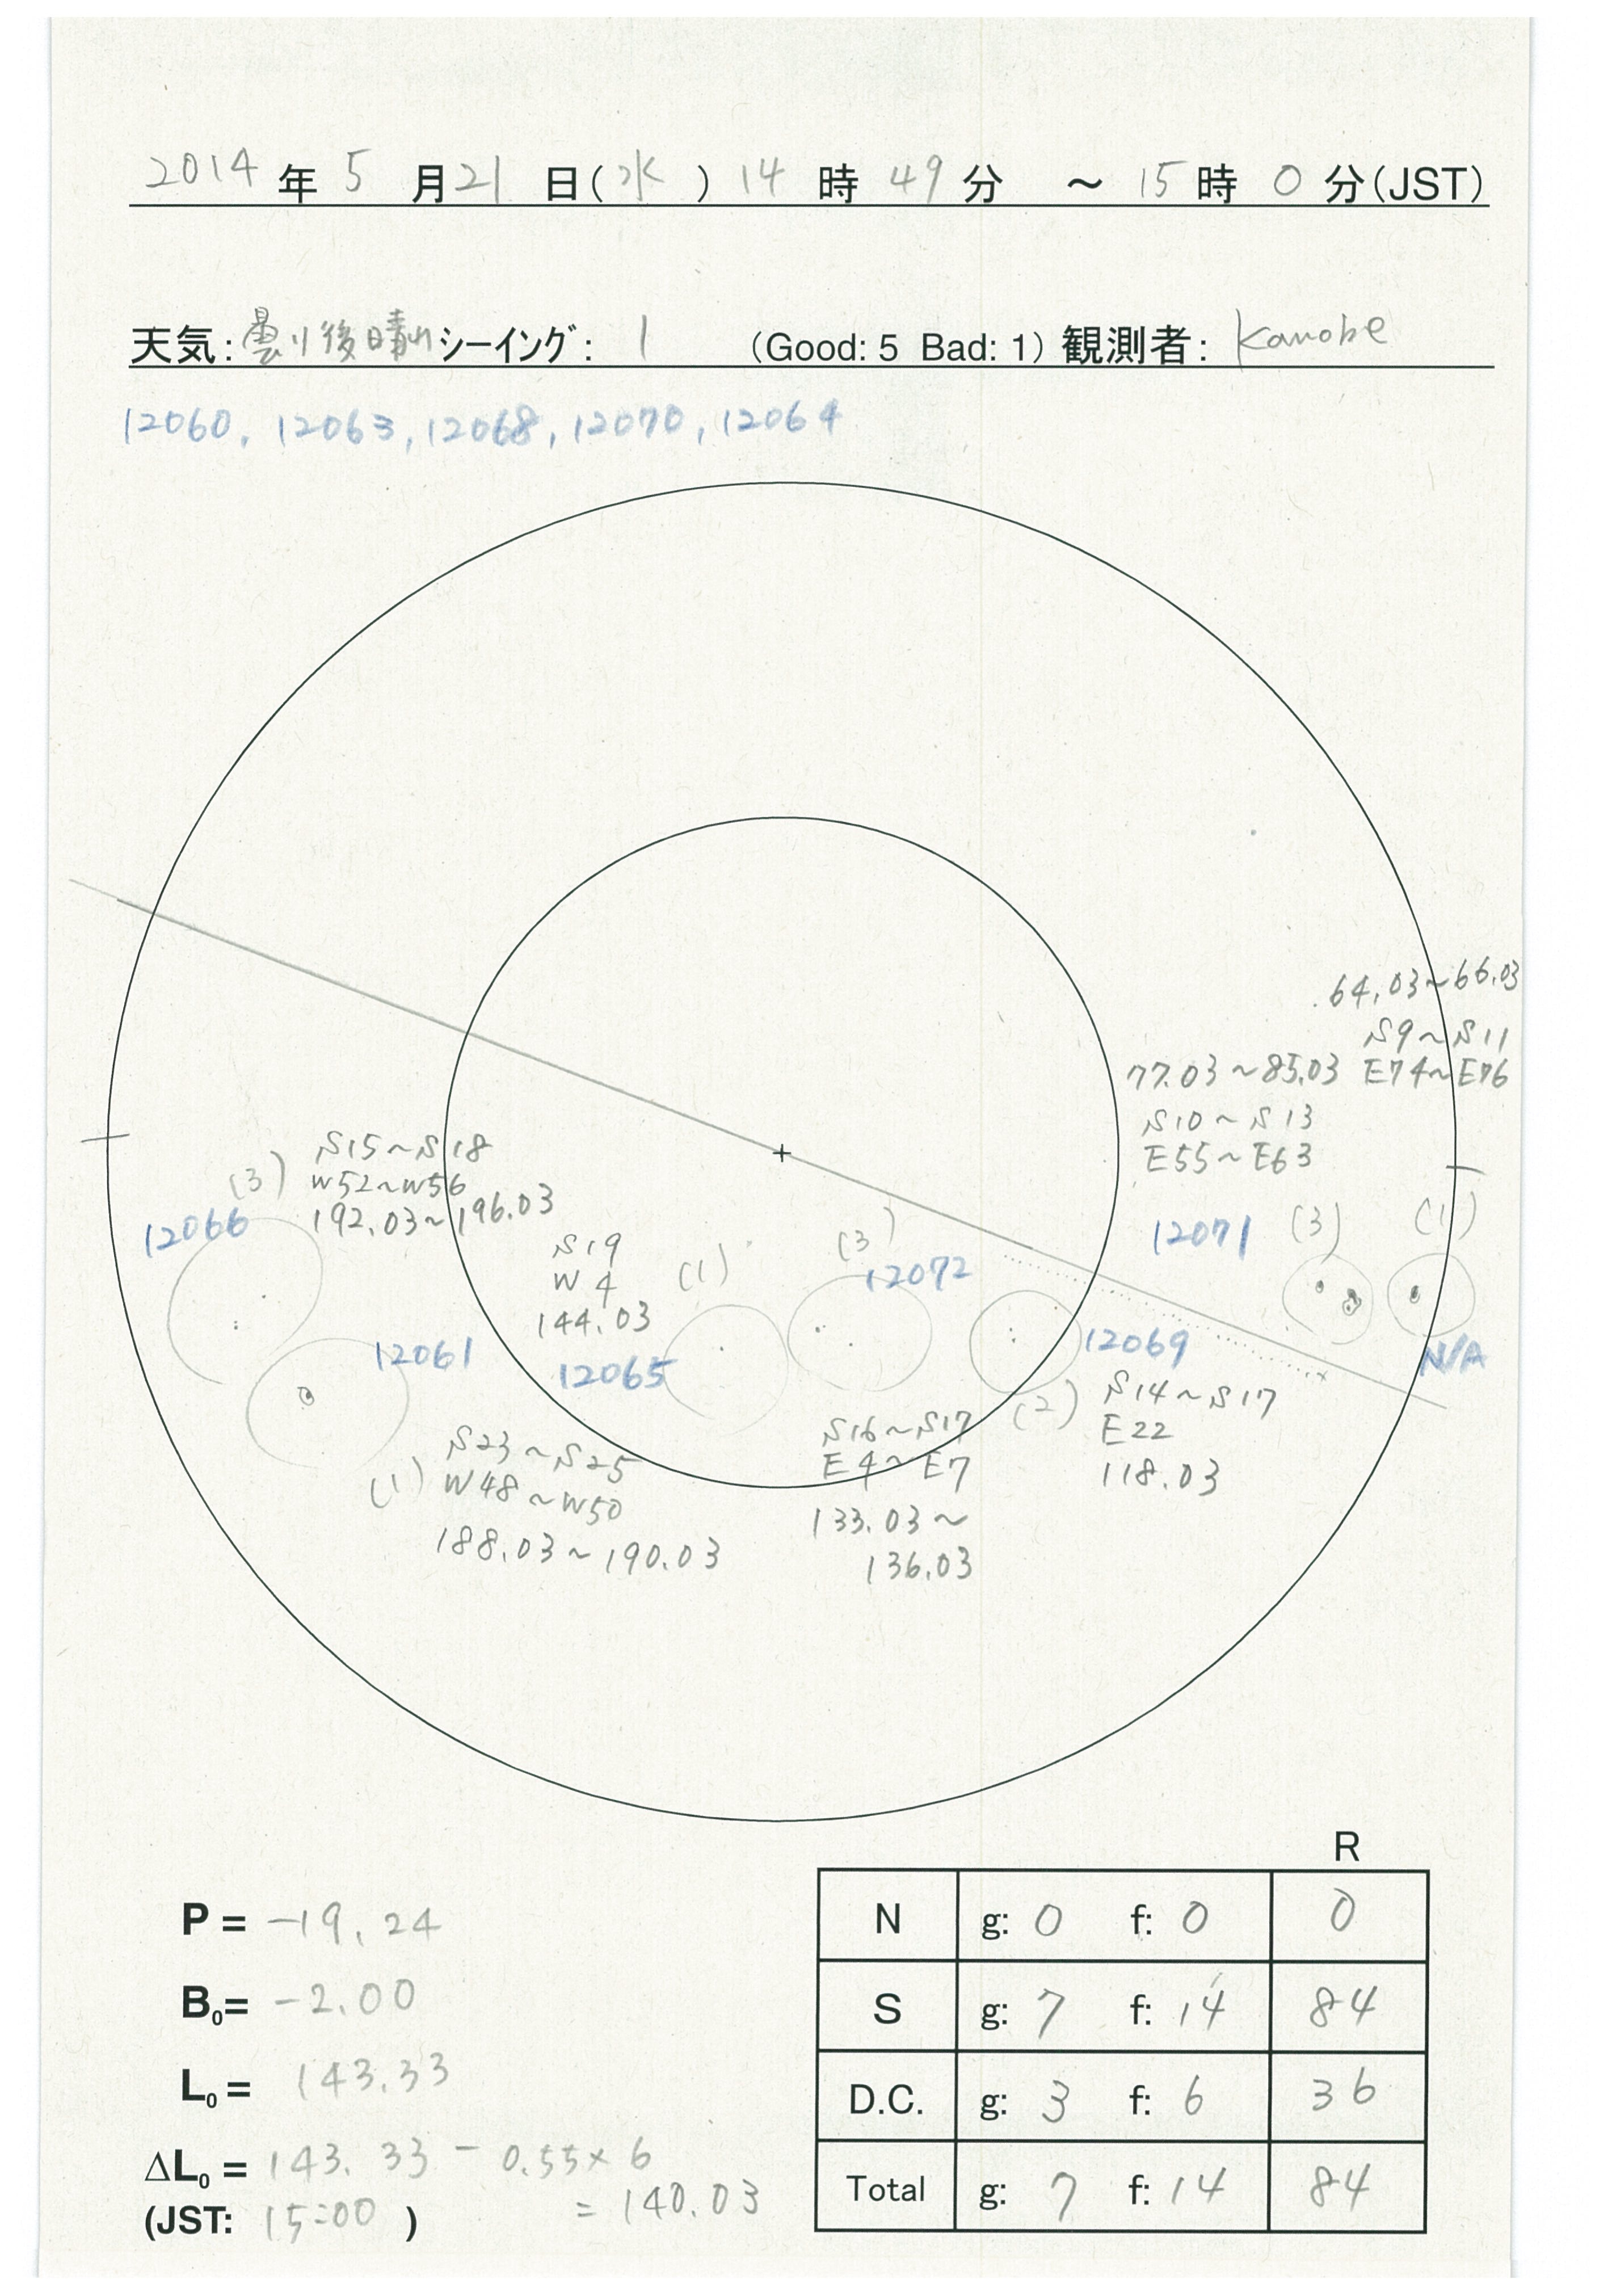 2014 年 5 月 21 日(水) 14 時 49 分 ～ 15 時 0 分(JST)
天気: 曇り後晴れ シーイング: 1 (Good: 5 Bad: 1) 観測者: Kanobe
12060, 12063, 12068, 12070, 12064
64.03~66.03
S9~S11
E74~E76
(1)
N/A
77.03~85.03
S10~S13
E55~E63
12071 (3)
(3) S15~S18
W52~W56
192.03~196.03
12066
S19
W4
144.03
(1)
12065
(3)
12072
S16~S17
E4~E7
133.03~
136.03
12069
(2) S14~S17
E22
118.03
12061
S23~S25
(1) W48~W50
188.03~190.03
R
P = -19.24
B₀= -2.00
L₀ = 143.33
ΔL₀ = 143.33 - 0.55×6
(JST: 15:00) = 140.03
N g: 0 f: 0 0
S g: 7 f: 14 84
D.C. g: 3 f: 6 36
Total g: 7 f: 14 84